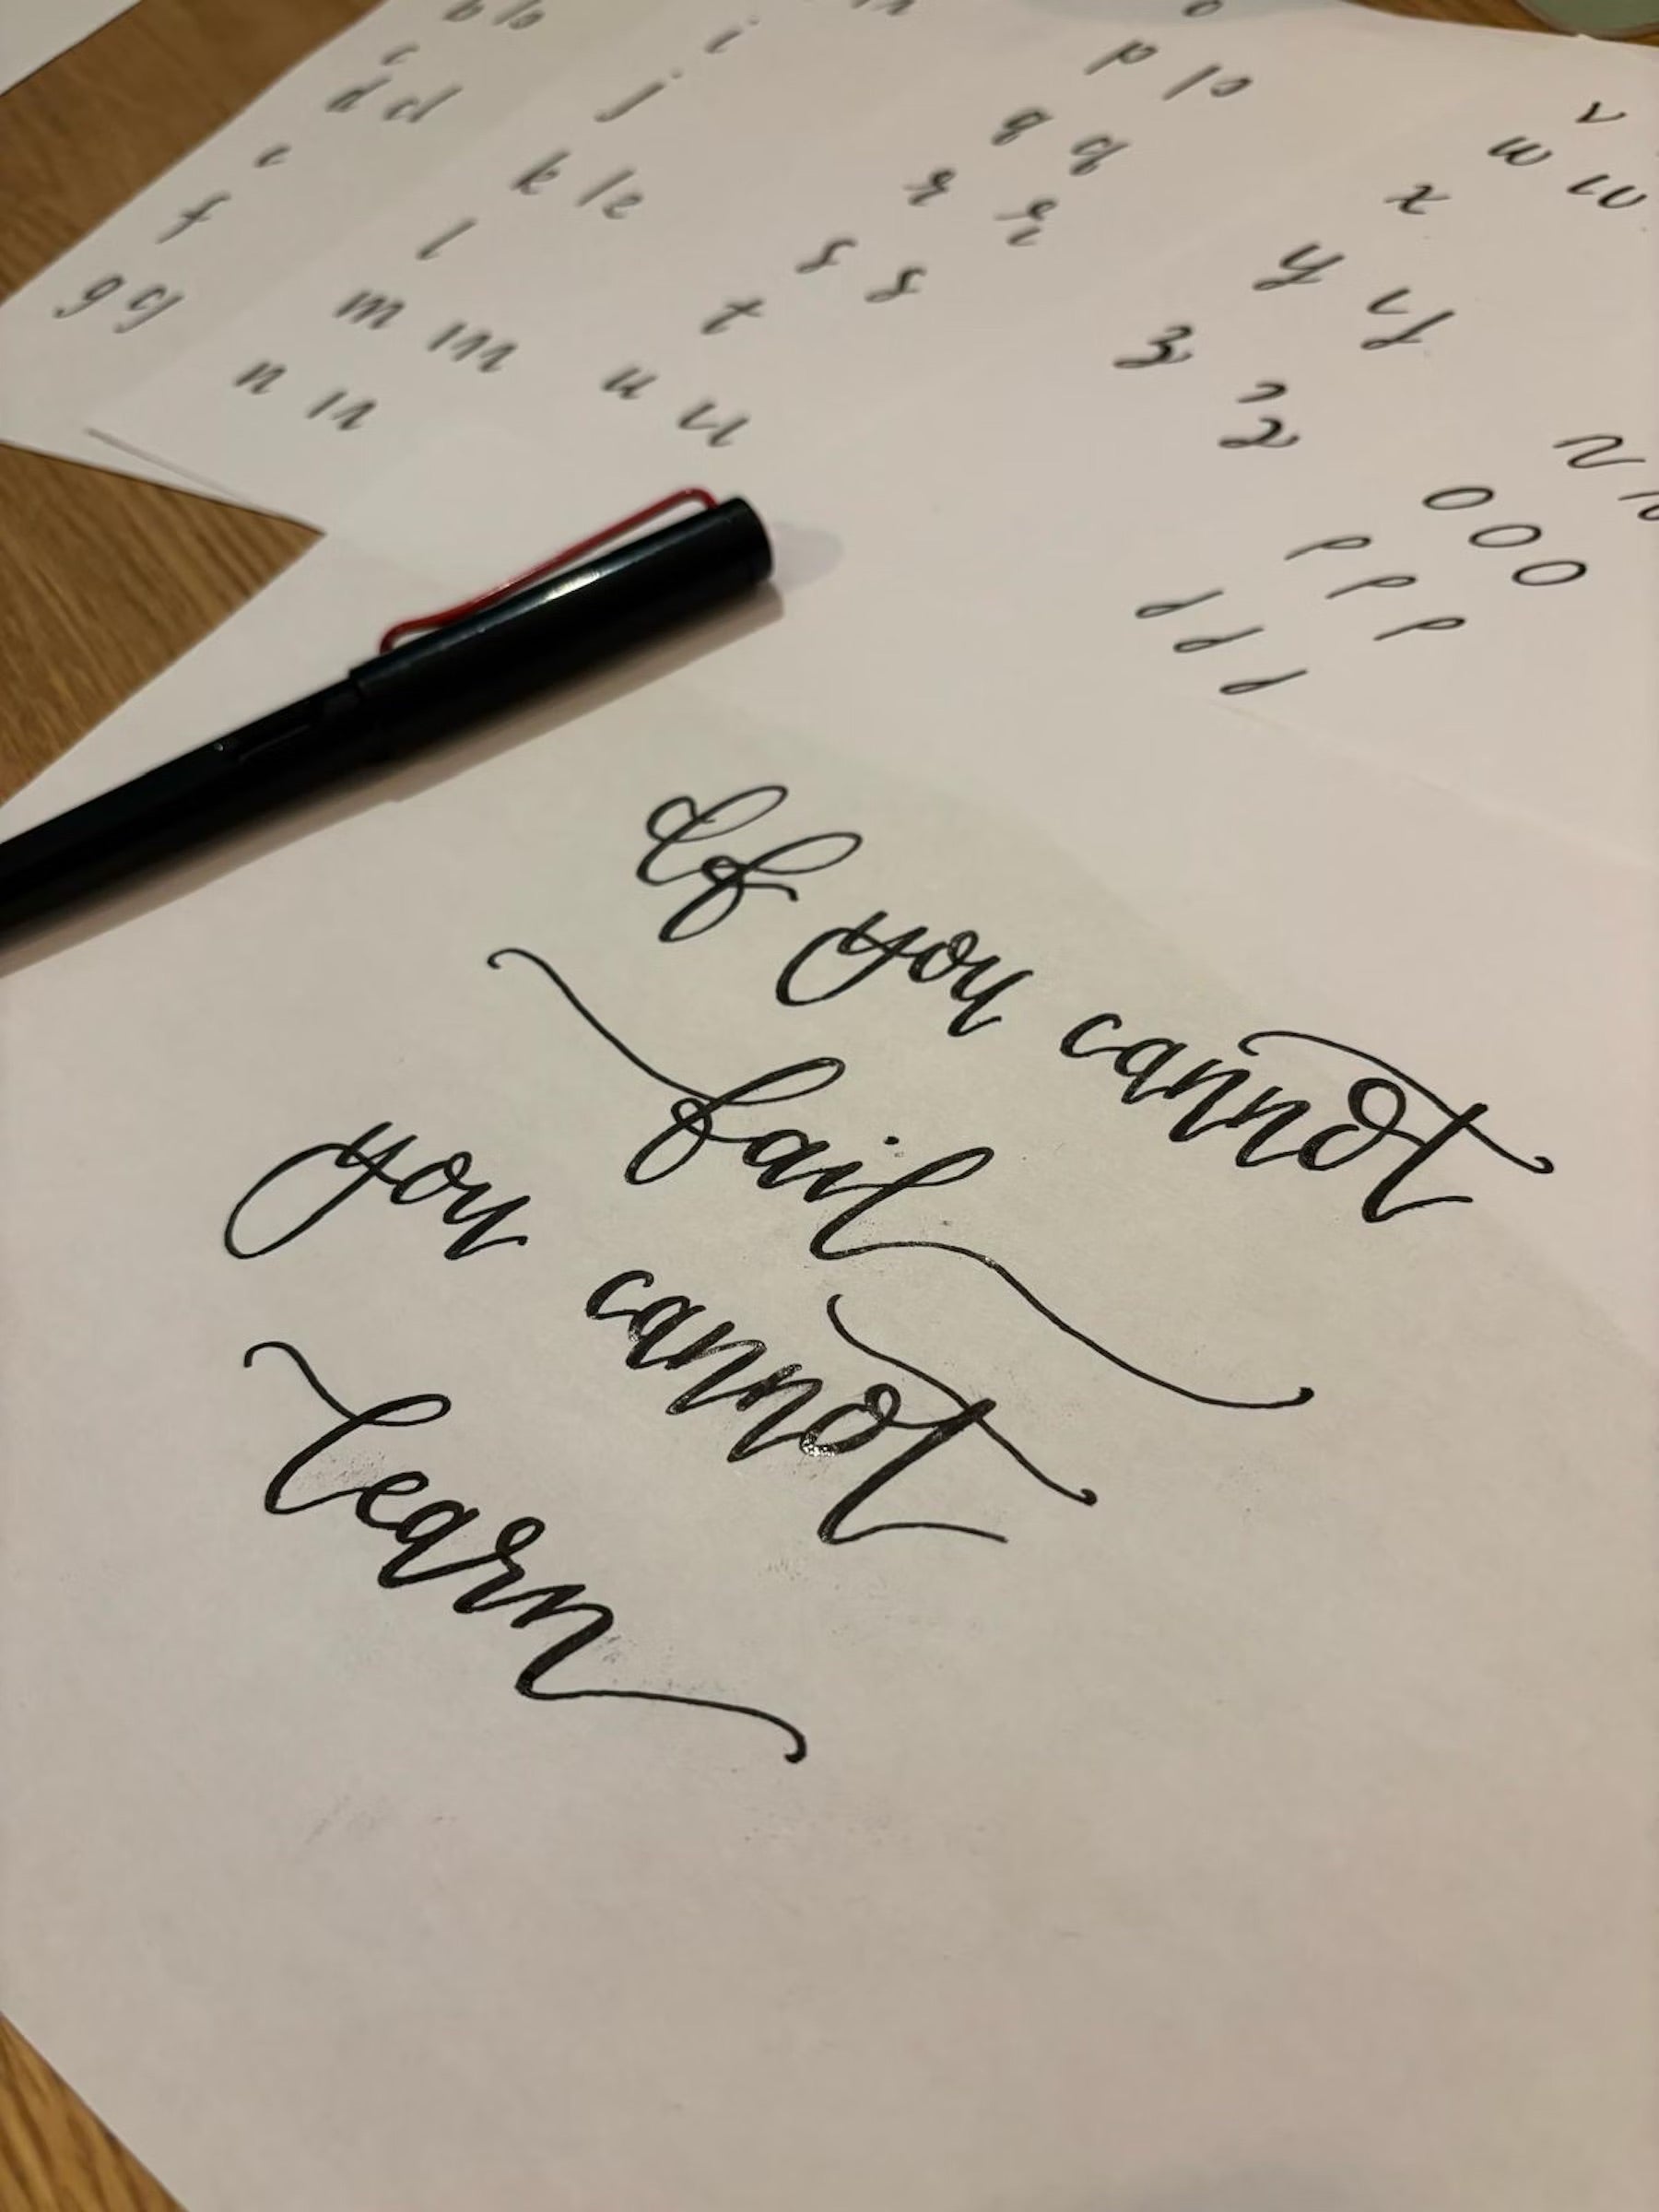 b b
c
d d
e
f
g g
i
j
k k
l
m m
n n
p p
q q
r r
s s
t
u u
v
w w
x
y y
z z
o o o
If you cannot
fail
you cannot
learn